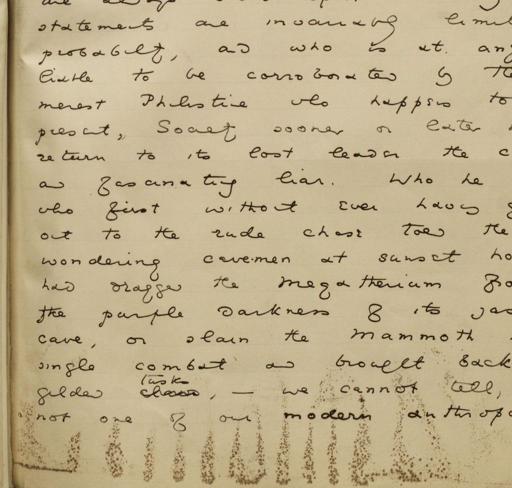 statements are invariably limit
probability, and who is at any
liable to be corroborated by the
merest Philistine who happens to
present, Society sooner or later
return to its lost leader the c
and fascinating liar. Who he
who first without ever having g
out to the rude chase told the
wondering cavemen at sunset ho
had dragged the Megatherium fro
the purple darkness of its jas
cave, or slain the Mammoth
single combat and brought back
gilded tusks, — we cannot tell,
not one of our modern anthropo